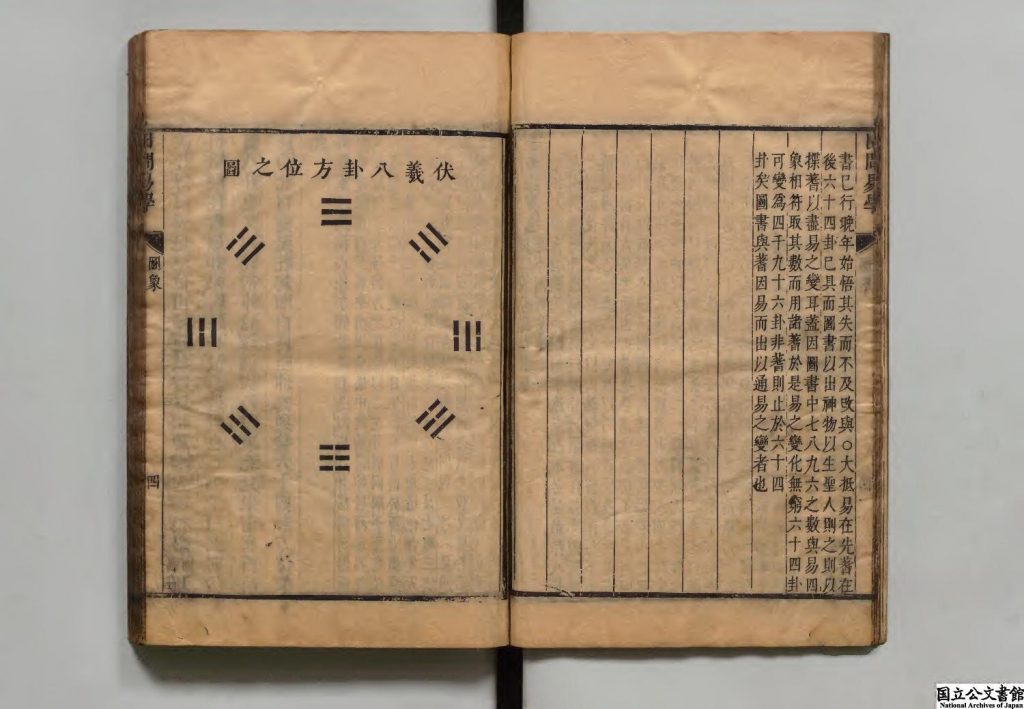 田間易學
書已行晚年始悟其失而不及改與○大抵易在先蓍在
後六十四卦已具而圖書以出神物以生聖人則之則以
揲蓍以盡易之變耳蓋因圖書中七八九六之數與易四
象相符取其數而用諸蓍於是易之變化無窮六十四卦
可變爲四千九十六卦非蓍則止於六十四
卦矣圖書與蓍因易而出以通易之變者也
伏羲八卦方位之圖
田間易學
圖象
四
国立公文書館
National Archives of Japan